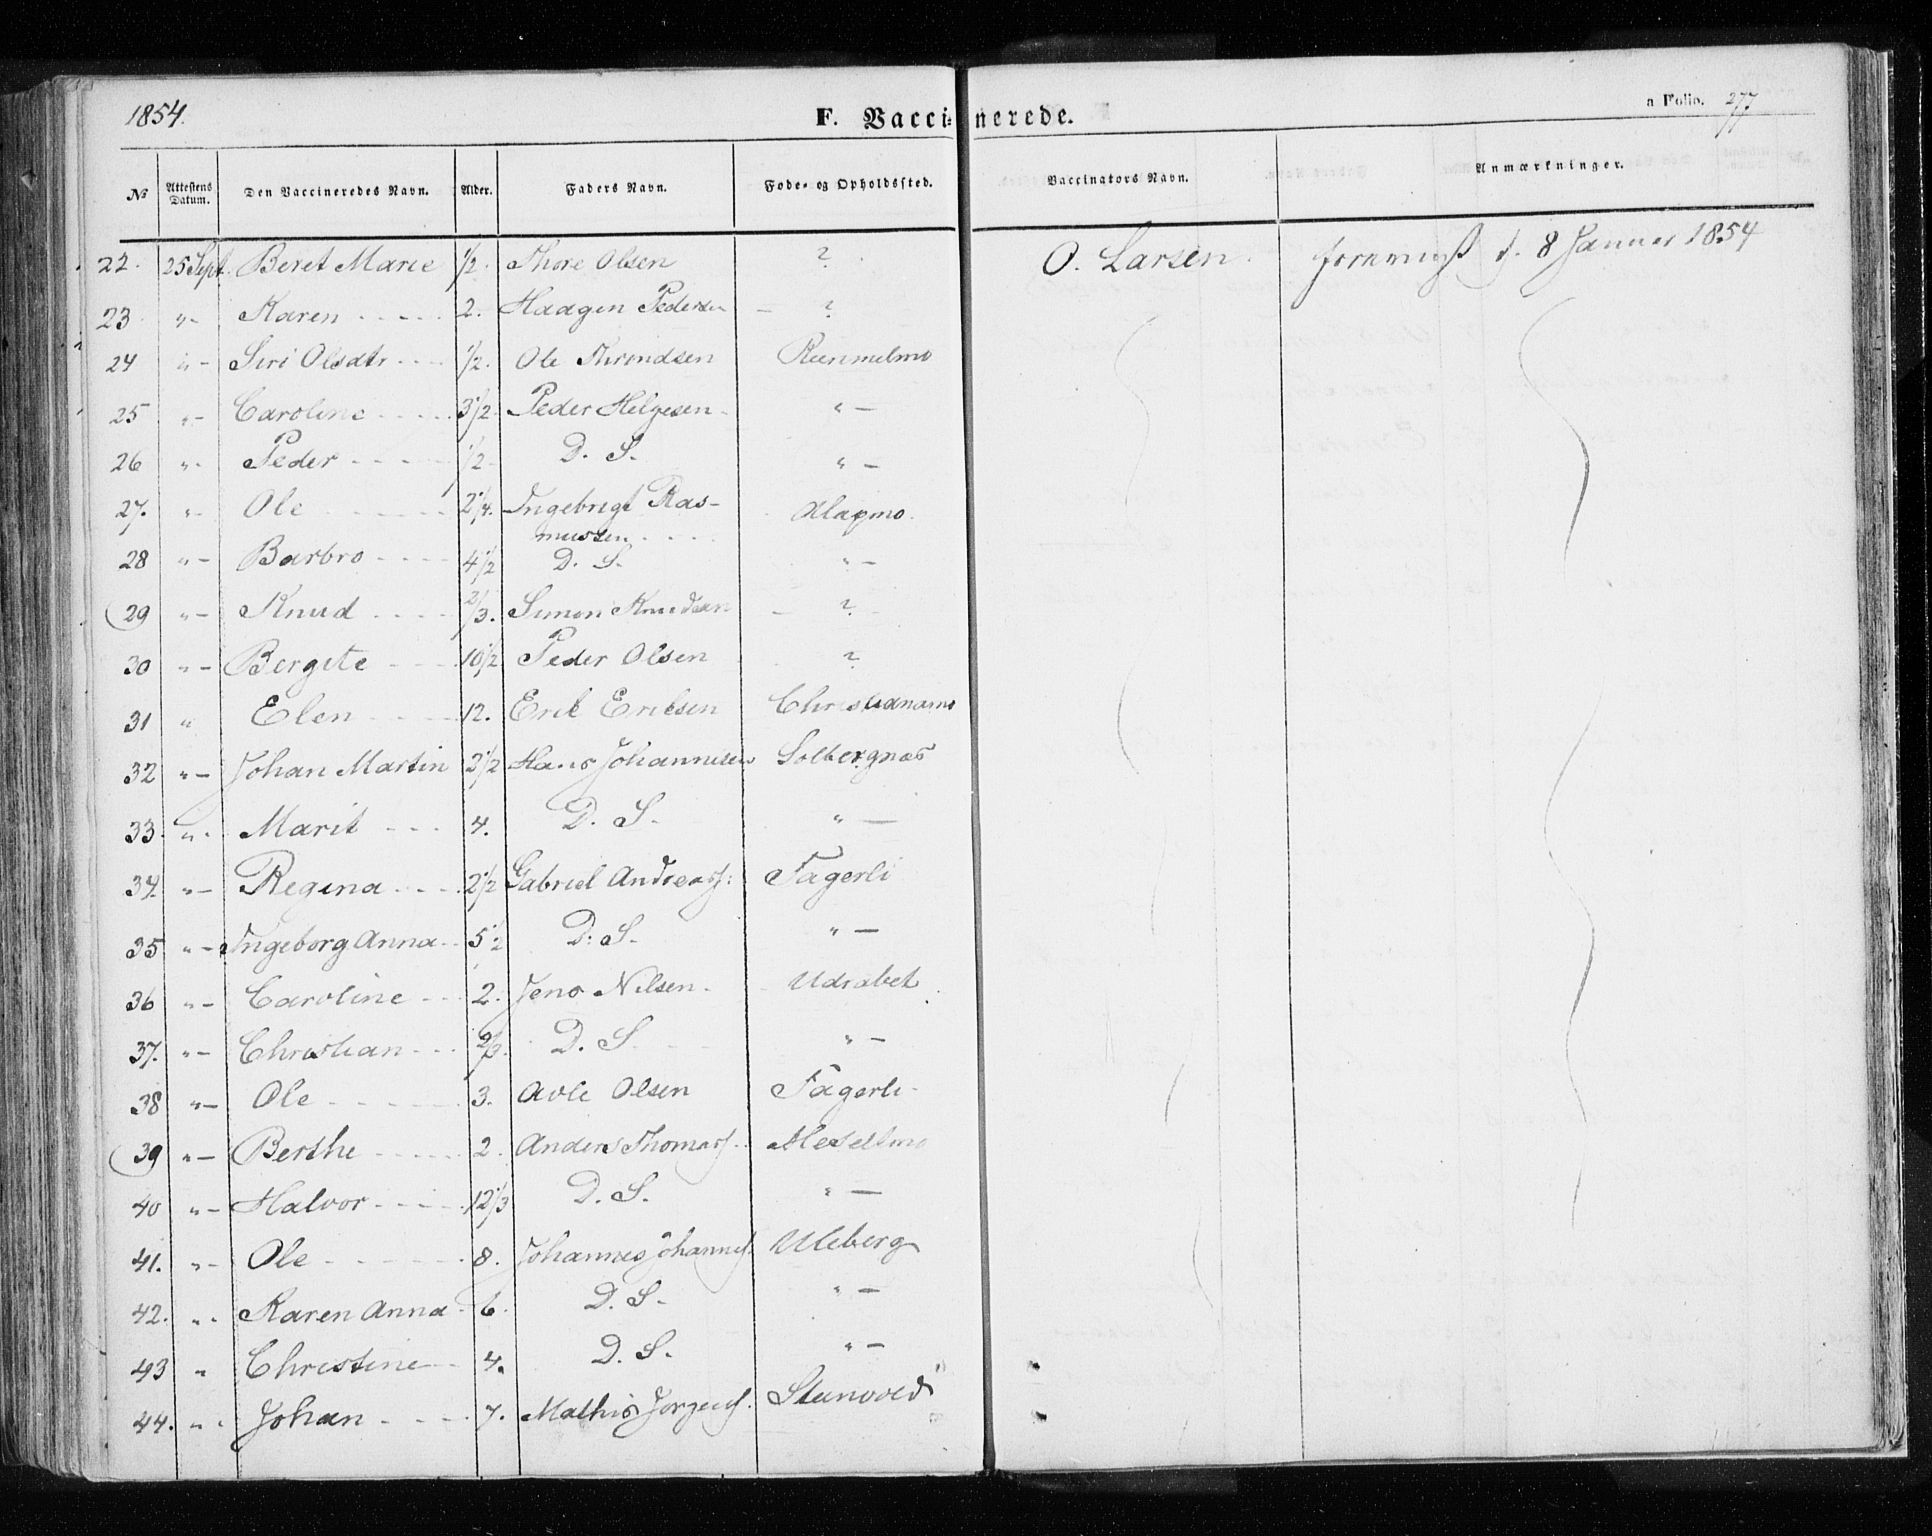 1854.
F. Vaccinerede.
a Folio. 277
No Attestens Datum. Den Vaccineredes Navn. Alder. Faders Navn. Føde- og Opholdssted. Vaccinators Navn. Anmærkninger.
22. 25 Sept. Beret Marie 1/2. Thore Olsen ? O. Larsen. d. 8 Januar 1854
23 "- Karen 2. Haagen Pedersen - ?
24 "- Siri Olsdtr 1/2. Ole Throndsen
25 "- Caroline 3 1/2 Peder Helgesen "-
26 "- Peder 1/2 D. S. "-
27. "- Ole 2 1/4. Ingebrigt Ras-
mussen
28 "- Barbro 4 1/2 D. S. "-
29 "- Knud 2/3. Simon Knudsen - ?
30 "- Bergite 10 1/2 Peder Olsen ?
31 " Elen 12. Erik Eriksen
32 "- Johan Martin 2 1/2 Hans Johannesen Solbergnæs
33. "- Marit 4. D. S. "-
34. "- Regina 2 1/2 Gabriel Andreass: Fagerli
35 "- Ingeborg Anna 5 1/2 D. S. "-
36 "- Caroline 2. Jens Nilsen
37. "- Christian 2/3. D. S. "-
38 "- Ole 3. Avle Olsen Fagerli
39 "- Berthe 2. Anders Thomass.
40 "- Halvor 12 1/3 D. S. "-
41. "- Ole 8. Johannes Johannes. Uleberg
42. "- Karen Anna 6. D. S. "-
43 " Christine 4. D. S. "-
44. "- Johan 7. Mathis Jørgens. Steinvold